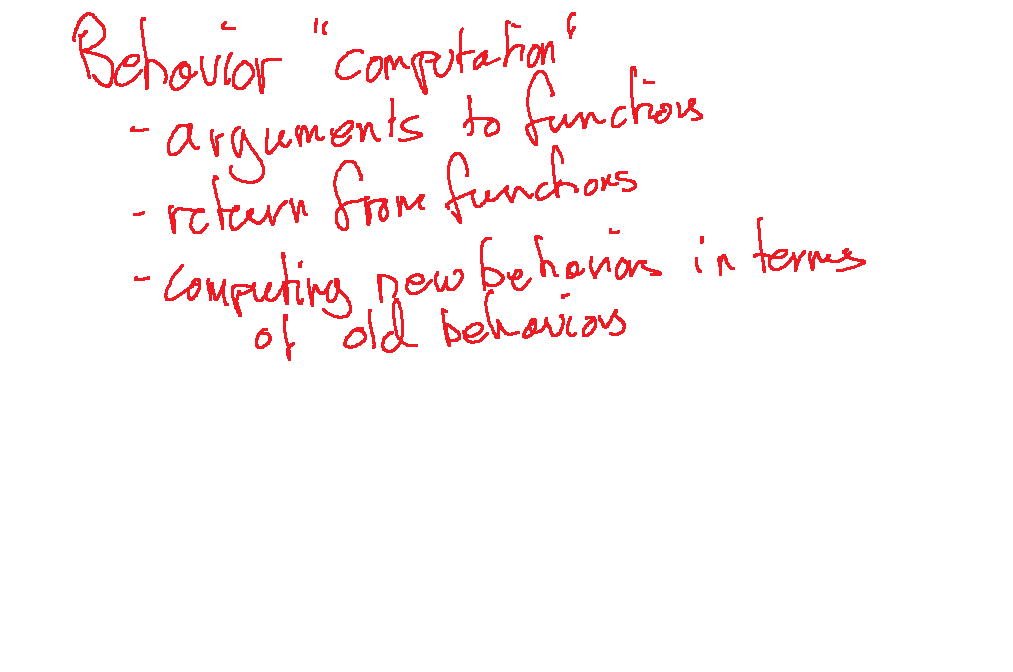 Behavior "computation"
- arguments to functions
- return from functions
- computing new behaviors in terms
of old behaviors